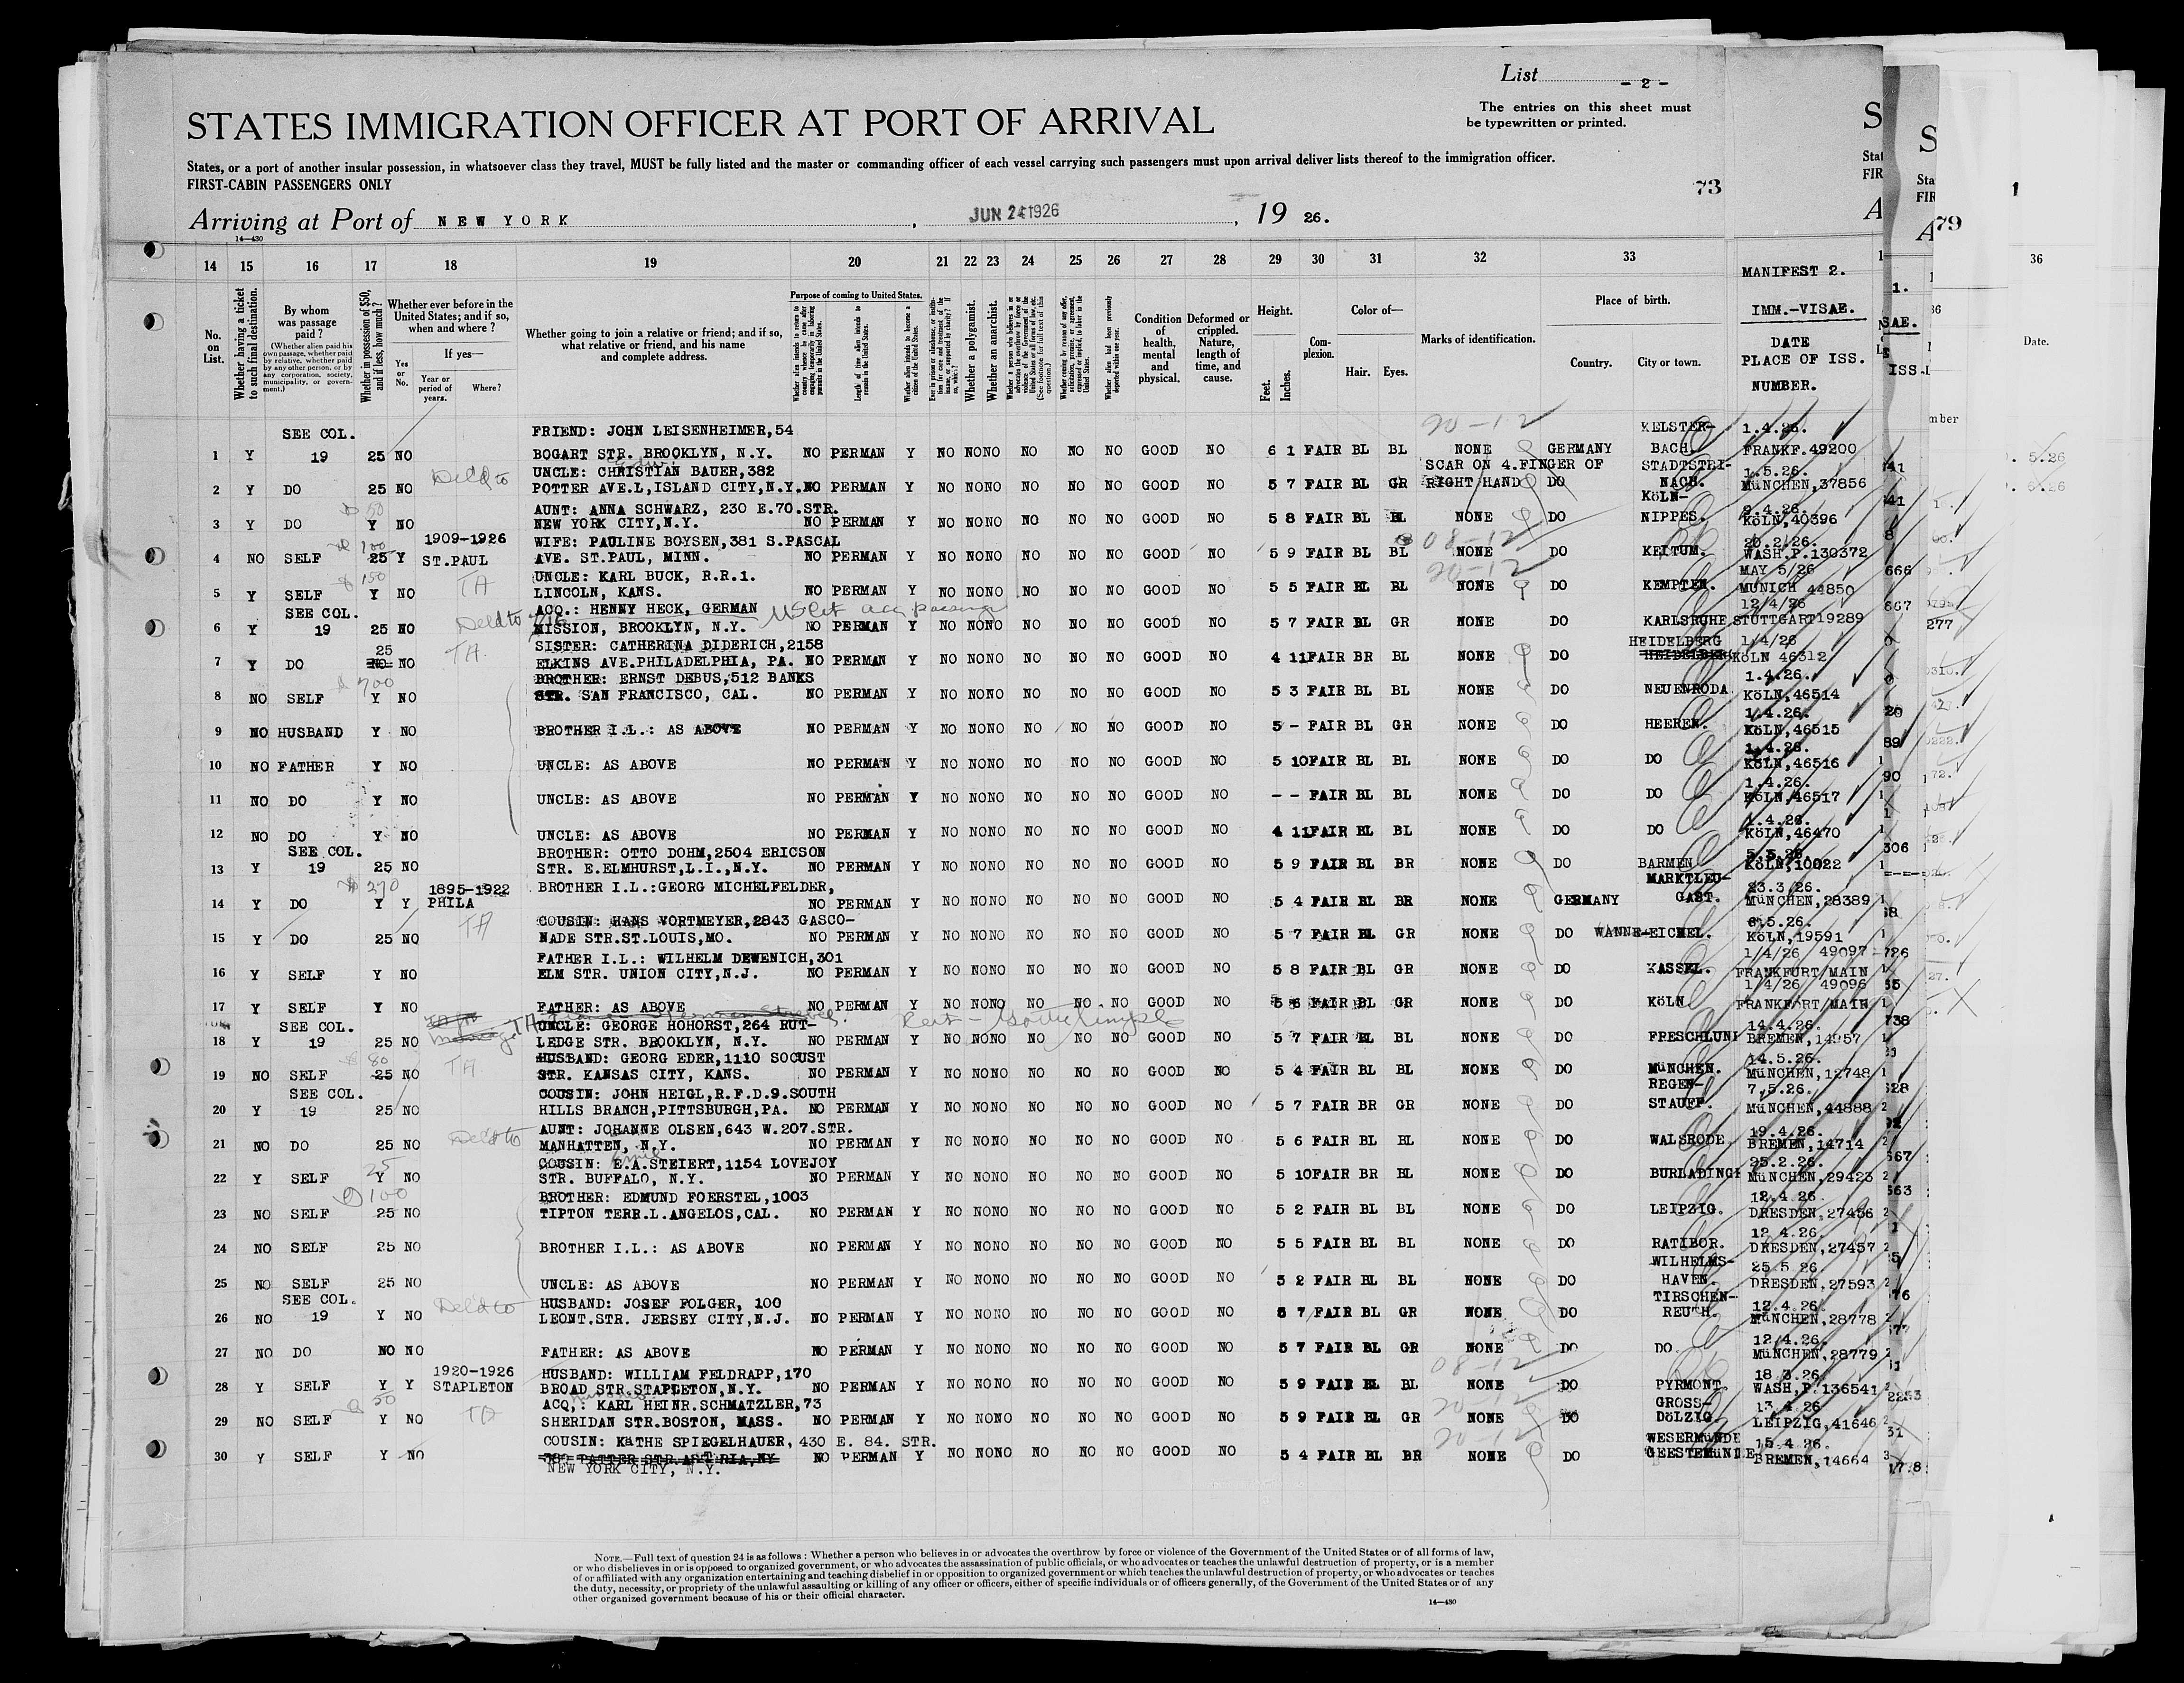 List - 2 -
The entries on this sheet must
be typewritten or printed.
STATES IMMIGRATION OFFICER AT PORT OF ARRIVAL
States, or a port of another insular possession, in whatsoever class they travel, MUST be fully listed and the master or commanding officer of each vessel carrying such passengers must upon arrival deliver lists thereof to the immigration officer.
FIRST-CABIN PASSENGERS ONLY
73
Arriving at Port of NEW YORK, JUN 24 1926, 19 26.
14—430
14 15 16 17 18 19 20 21 22 23 24 25 26 27 28 29 30 31 32 33
MANIFEST 2.
IMM.-VISAE.
DATE
PLACE OF ISS.
NUMBER.
No. on List.
Whether having a ticket to such final destination.
By whom was passage paid?
(Whether alien paid his own passage, whether paid by relative, whether paid by any other person, or by any corporation, society, municipality, or government.)
Whether in possession of $50, and if less, how much?
Whether ever before in the United States; and if so, when and where?
Yes or No.
If yes—
Year or period of years.
Where?
Whether going to join a relative or friend; and if so, what relative or friend, and his name and complete address.
Purpose of coming to United States.
Length of time alien intends to remain in the United States.
Whether alien intends to become a citizen of the United States.
Whether a polygamist.
Whether an anarchist.
Condition of health, mental and physical.
Deformed or crippled. Nature, length of time, and cause.
Height.
Feet. Inches.
Complexion.
Color of—
Hair. Eyes.
Marks of identification.
Place of birth.
Country. City or town.
SEE COL. FRIEND: JOHN LEISENHEIMER,54 20-12 KELSTER- 1.4.26.
1 Y 19 25 NO BOGART STR. BROOKLYN, N.Y. NO PERMAN Y NO NO NO NO NO NO GOOD NO 6 1 FAIR BL BL NONE GERMANY BACH. FRANKF.49200
UNCLE: CHRISTIAN BAUER,382 SCAR ON 4.FINGER OF STADTSTEI- 1.5.26.
2 Y DO 25 NO POTTER AVE.L,ISLAND CITY,N.Y. NO PERMAN Y NO NO NO NO NO NO GOOD NO 5 7 FAIR BL GR RIGHT HAND DO NACH. MüNCHEN,37856
$ 50 AUNT: ANNA SCHWARZ, 230 E.70.STR. KöLN- 9.4.26.
3 Y DO Y NO NEW YORK CITY,N.Y. NO PERMAN Y NO NO NO NO NO NO GOOD NO 5 8 FAIR BL BL NONE DO NIPPES. KöLN,40396
$ 100 1909-1926 WIFE: PAULINE BOYSEN,381 S.PASCAL 08-12 20.2.26.
4 NO SELF 25 Y ST.PAUL AVE. ST.PAUL, MINN. NO PERMAN Y NO NO NO NO NO NO GOOD NO 5 9 FAIR BL BL NONE DO KEITUM. WASH.P.130372
$ 150 TA UNCLE: KARL BUCK, R.R.1. 20-12 MAY 5/26
5 Y SELF Y NO LINCOLN, KANS. NO PERMAN Y NO NO NO NO NO NO GOOD NO 5 5 FAIR BL BL NONE DO KEMPTEN. MUNICH 44850
SEE COL. ACQ.: HENNY HECK, GERMAN 12/4/26
6 Y 19 25 NO MISSION, BROOKLYN, N.Y. NO PERMAN Y NO NO NO NO NO NO GOOD NO 5 7 FAIR BL GR NONE DO KARLSRUHE STUTTGART19289
25 TA. SISTER: CATHERINA DIDERICH,2158 HEIDELBERG 1/4/26
7 Y DO NO NO ELKINS AVE.PHILADELPHIA, PA. NO PERMAN Y NO NO NO NO NO NO GOOD NO 4 11 FAIR BR BL NONE DO HEIDELBERG KöLN 46312
$ 700 BROTHER: ERNST DEBUS,512 BANKS 1.4.26.
8 NO SELF Y NO STR. SAN FRANCISCO, CAL. NO PERMAN Y NO NO NO NO NO NO GOOD NO 5 3 FAIR BL BL NONE DO NEUENRODA KöLN,46514
1.4.26.
9 NO HUSBAND Y NO BROTHER I.L.: AS ABOVE NO PERMAN Y NO NO NO NO NO NO GOOD NO 5 - FAIR BL GR NONE DO HEEREN. KöLN,46515
1.4.26.
10 NO FATHER Y NO UNCLE: AS ABOVE NO PERMAN Y NO NO NO NO NO NO GOOD NO 5 10 FAIR BL BL NONE DO DO KöLN,46516
1.4.26.
11 NO DO Y NO UNCLE: AS ABOVE NO PERMAN Y NO NO NO NO NO NO GOOD NO - - FAIR BL BL NONE DO DO KöLN,46517
1.4.26.
12 NO DO Y NO UNCLE: AS ABOVE NO PERMAN Y NO NO NO NO NO NO GOOD NO 4 11 FAIR BL BL NONE DO DO KöLN,46470
SEE COL. BROTHER: OTTO DOHM,2504 ERICSON 5.3.26.
13 Y 19 25 NO STR. E.ELMHURST,L.I.,N.Y. NO PERMAN Y NO NO NO NO NO NO GOOD NO 5 9 FAIR BL BR NONE DO BARMEN KöLN,10022
$ 270 1895-1922 BROTHER I.L.:GEORG MICHELFELDER, MARKTLEU- 23.3.26.
14 Y DO Y Y PHILA NO PERMAN Y NO NO NO NO NO NO GOOD NO 5 4 FAIR BL BR NONE GERMANY GAST. MüNCHEN,28389
TA COUSIN: HANS VORTMEYER,2843 GASCO- 6.5.26.
15 Y DO 25 NO NADE STR.ST.LOUIS,MO. NO PERMAN Y NO NO NO NO NO NO GOOD NO 5 7 FAIR BL GR NONE DO WANNE-EICKEL. KöLN,19591
FATHER I.L.: WILHELM DEWENICH,301 1/4/26 49097
16 Y SELF Y NO ELM STR. UNION CITY,N.J. NO PERMAN Y NO NO NO NO NO NO GOOD NO 5 8 FAIR BL GR NONE DO KASSEL. FRANKFURT/MAIN
1/4/26 49096
17 Y SELF Y NO FATHER: AS ABOVE NO PERMAN Y NO NO NO NO NO NO GOOD NO 5 6 FAIR BL GR NONE DO KöLN FRANKFART/MAIN
SEE COL. TA UNCLE: GEORGE HOHORST,264 RUT- 14.4.26.
18 Y 19 25 NO LEDGE STR. BROOKLYN, N.Y. NO PERMAN Y NO NO NO NO NO NO GOOD NO 5 7 FAIR BL BL NONE DO FRESCHLUNI BREMEN,14957
$ 80 TA HUSBAND: GEORG EDER,1110 SOCUST 14.5.26.
19 NO SELF 25 NO STR. KANSAS CITY, KANS. NO PERMAN Y NO NO NO NO NO NO GOOD NO 5 4 FAIR BL BL NONE DO MüNCHEN. MüNCHEN,12748
SEE COL. COUSIN: JOHN HEIGL,R.F.D.9.SOUTH REGEN- 7.5.26.
20 Y 19 25 NO HILLS BRANCH,PITTSBURGH,PA. NO PERMAN Y NO NO NO NO NO NO GOOD NO 5 7 FAIR BR GR NONE DO STAUFF. MüNCHEN,44888
AUNT: JOHANNE OLSEN,643 W.207.STR. 19.4.26.
21 NO DO 25 NO MANHATTEN, N.Y. NO PERMAN Y NO NO NO NO NO NO GOOD NO 5 6 FAIR BL BL NONE DO WALSRODE BREMEN,14714
25 COUSIN: E.A.STEIERT,1154 LOVEJOY 25.2.26.
22 Y SELF Y NO STR. BUFFALO, N.Y. NO PERMAN Y NO NO NO NO NO NO GOOD NO 5 10 FAIR BR BL NONE DO BURLADINGE MüNCHEN,29423
100 BROTHER: EDMUND FOERSTEL,1003 12.4.26
23 NO SELF 25 NO TIPTON TERR.L.ANGELOS,CAL. NO PERMAN Y NO NO NO NO NO NO GOOD NO 5 2 FAIR BL BL NONE DO LEIPZIG. DRESDEN,27456
12.4.26.
24 NO SELF 25 NO BROTHER I.L.: AS ABOVE NO PERMAN Y NO NO NO NO NO NO GOOD NO 5 5 FAIR BL BL NONE DO RATIBOR. DRESDEN,27457
WILHELMS- 25.5.26.
25 NO SELF 25 NO UNCLE: AS ABOVE NO PERMAN Y NO NO NO NO NO NO GOOD NO 5 2 FAIR BL BL NONE DO HAVEN. DRESDEN,27593
SEE COL. HUSBAND: JOSEF FOLGER, 100 TIRSCHEN- 12.4.26.
26 NO 19 Y NO LEONT.STR. JERSEY CITY,N.J. NO PERMAN Y NO NO NO NO NO NO GOOD NO 5 7 FAIR BL GR NONE DO REUTH. MüNCHEN,28778
12/4.26.
27 NO DO NO NO FATHER: AS ABOVE NO PERMAN Y NO NO NO NO NO NO GOOD NO 5 7 FAIR BL GR NONE DO DO. MüNCHEN,28779
1920-1926 HUSBAND: WILLIAM FELDRAPP,170 08-12 18.3.26.
28 Y SELF Y Y STAPLETON BROAD STR.STAPLETON,N.Y. NO PERMAN Y NO NO NO NO NO NO GOOD NO 5 9 FAIR BL BL NONE DO PYRMONT. WASH.P.136541
50 TA ACQ,: KARL HEINR.SCHMATZLER,73 20-12 GROSS- 13.4.26
29 NO SELF Y NO SHERIDAN STR.BOSTON, MASS. NO PERMAN Y NO NO NO NO NO NO GOOD NO 5 9 FAIR BL GR NONE DO DöLZIG. LEIPZIG,41646
COUSIN: KäTHE SPIEGELHAUER, 430 E. 84. STR. 20-12 WESERMüNDE 15.4.26.
30 Y SELF Y NO NO PERMAN Y NO NO NO NO NO NO GOOD NO 5 4 FAIR BL BR NONE DO GEESTEMüNDE BREMEN,14664
NEW YORK CITY, N.Y.
NOTE.—Full text of question 24 is as follows: Whether a person who believes in or advocates the overthrow by force or violence of the Government of the United States or of all forms of law,
or who disbelieves in or is opposed to organized government, or who advocates the assassination of public officials, or who advocates or teaches the unlawful destruction of property, or is a member
of or affiliated with any organization entertaining and teaching disbelief in or opposition to organized government or which teaches the unlawful destruction of property, or who advocates or teaches
the duty, necessity, or propriety of the unlawful assaulting or killing of any officer or officers, either of specific individuals or of officers generally, of the Government of the United States or of any
other organized government because of his or their official character.
14—430
79
36
Date.